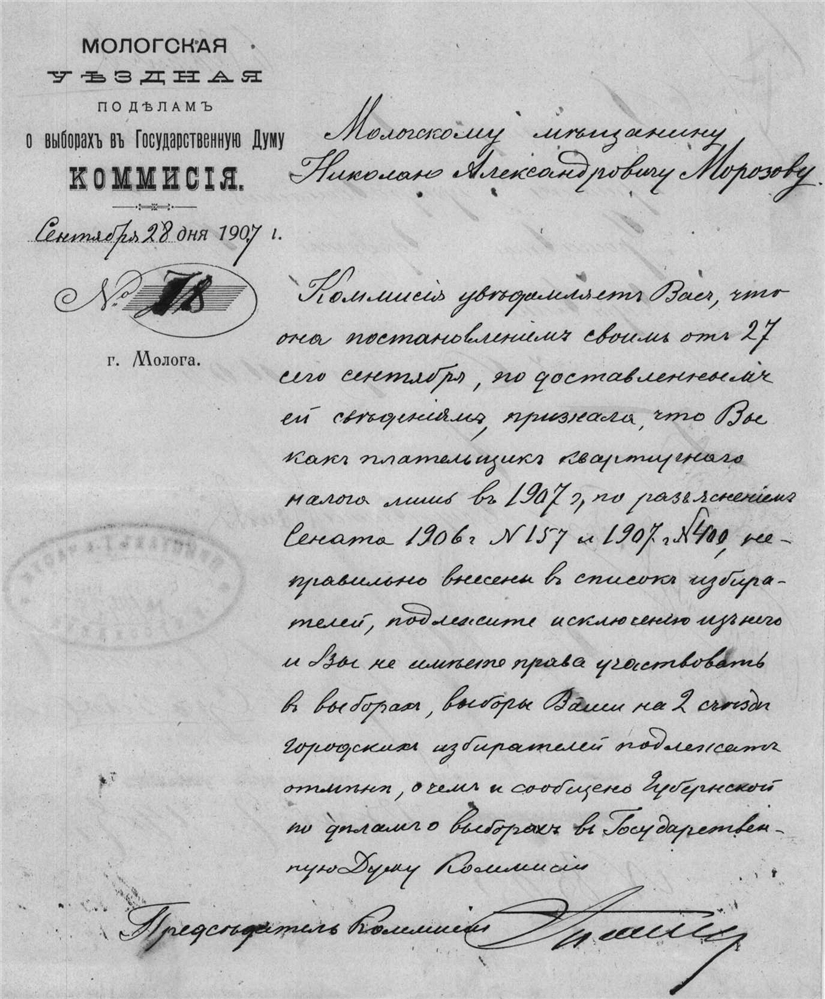 МОЛОГСКАЯ
УѢЗДНАЯ
ПО ДѢЛАМЪ
О ВЫБОРАХЪ ВЪ ГОСУДАРСТВЕННУЮ ДУМУ
КОММИСІЯ.
Сентября 28 дня 1907 г.
№ 78
г. Молога.
Мологскому мѣщанину
Николаю Александровичу Морозову.
Коммисія увѣдомляетъ Васъ, что
она постановленіемъ своимъ отъ 27
сего сентября, по доставленнымъ
ей свѣдѣніямъ, признала, что Вы
какъ плательщикъ квартирнаго
налога лишь въ 1907 г, по разъясненіемъ
Сената 1906 г N 157 и 1907 г N 400, не-
правильно внесены въ списокъ избира-
телей, подлежите исключенію изъ него
и Вы не имѣете права участвовать
въ выборахъ, выборы Ваши на 2 съѣзде
городскихъ избирателей подлежатъ
отмѣнѣ, о чемъ и сообщено Губернской
по дѣламъ о выборахъ въ Государствен-
ную Думу Коммисіи
Предсѣдатель Коммисіи